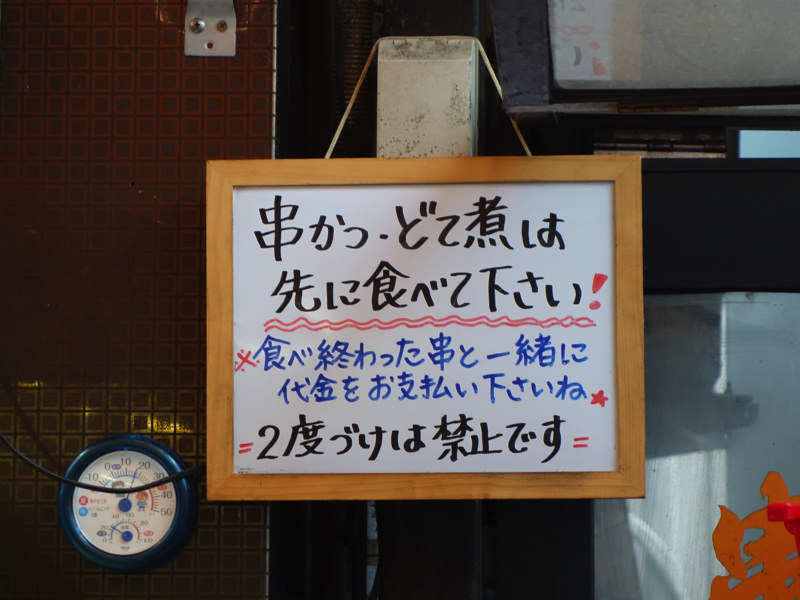 串かつ・どて煮は
先に食べて下さい!
※食べ終わった串と一緒に
代金をお支払い下さいね★
=2度づけは禁止です=